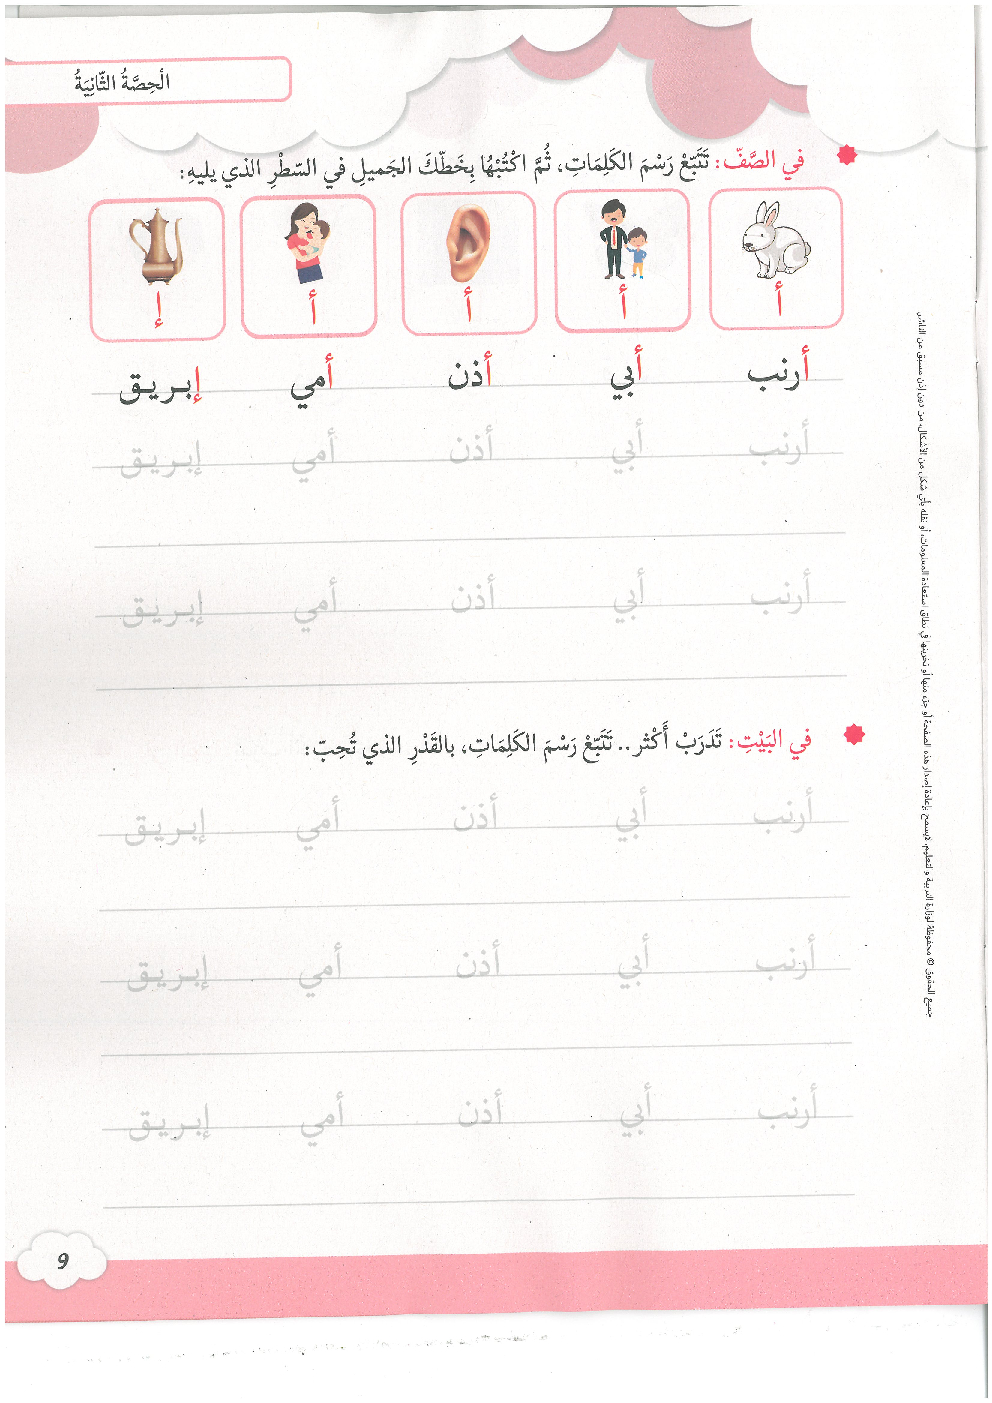 الْحِصَّةُ الثّانِيَةُ
في الصَّفّ: تَتَبّعْ رَسْمَ الكَلِمَاتِ، ثُمَّ اكْتُبْهُا بِخَطّكَ الجَميلِ في السّطْرِ الذي يليهِ:
أ أ أ أ إ
أرنب أبي أذن أمي إبريق
أرنب أبي أذن أمي إبريق
أرنب أبي أذن أمي إبريق
في البَيْتِ: تَدَرَبْ أَكْثر.. تَتَبّعْ رَسْمَ الكَلِمَاتِ، بالقَدْرِ الذي تُحِبّ:
أرنب أبي أذن أمي إبريق
أرنب أبي أذن أمي إبريق
أرنب أبي أذن أمي إبريق
9
جميع الحقوق © محفوظة لوزارة التربية والتعليم، لايسمح بإعادة إصدار هذه الصفحة أو جزء منها أو تخزينها في نطاق استعادة المعلومات، أو نقله بأي شكل من الأشكال، من دون إذن مسبق من الناشر.